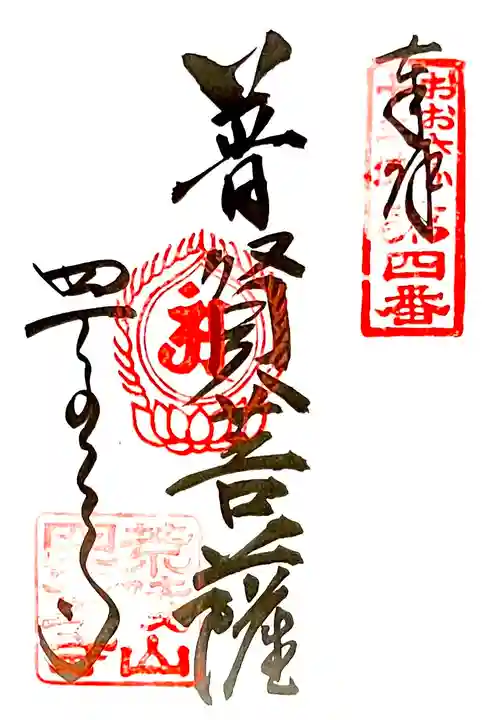 奉拝
おおさか十三佛第四番
普賢菩薩
四天王寺
荒陵山
四天王寺